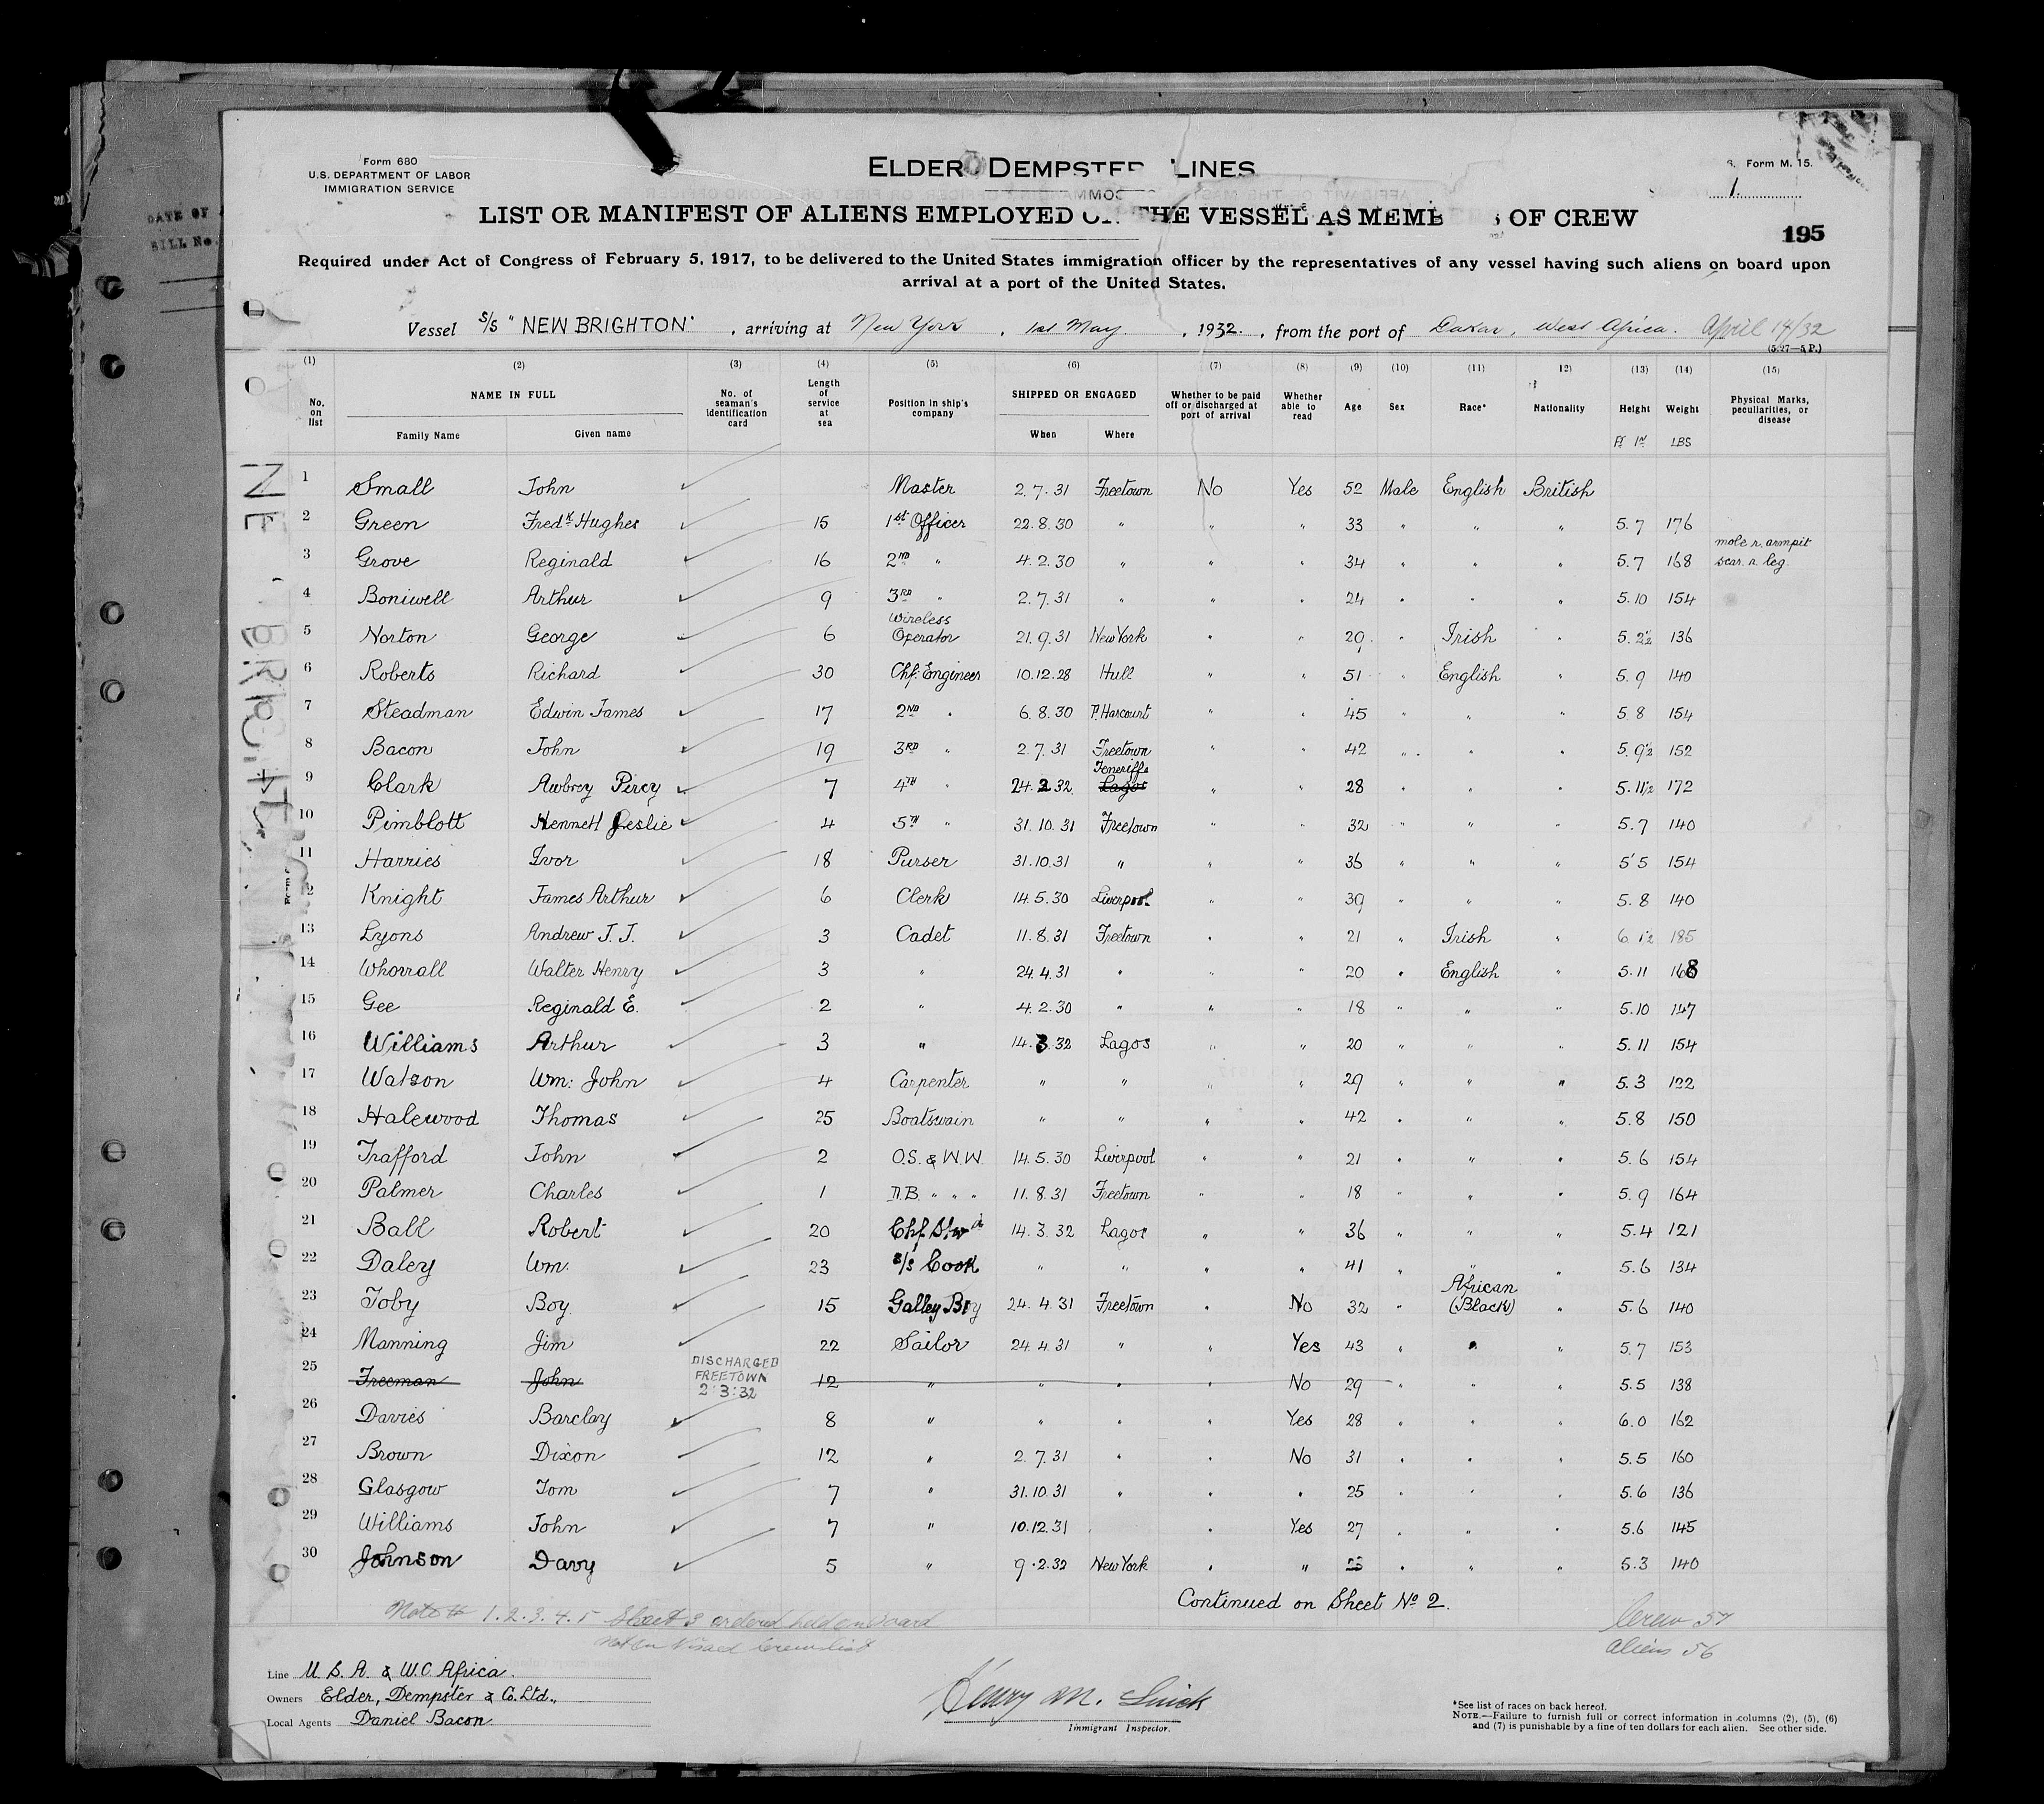 DATE OF
BILL No.
Form 680
U.S. DEPARTMENT OF LABOR
IMMIGRATION SERVICE
ELDER DEMPSTER LINES
Form M. 15.
1.
LIST OR MANIFEST OF ALIENS EMPLOYED ON THE VESSEL AS MEMB S OF CREW
195
Required under Act of Congress of February 5, 1917, to be delivered to the United States immigration officer by the representatives of any vessel having such aliens on board upon
arrival at a port of the United States.
Vessel S/S "NEW BRIGHTON", arriving at New York, 1st May, 1932., from the port of Dakar, West Africa. April 14/32
(5.27—5 P.)
(1) (2) (3) (4) (5) (6) (7) (8) (9) (10) (11) 12) (13) (14) (15)
No. on list NAME IN FULL Family Name Given name No. of seaman's identification card Length of service at sea Position in ship's company SHIPPED OR ENGAGED When Where Whether to be paid off or discharged at port of arrival Whether able to read Age Sex Race* Nationality Height Ft In Weight LBS Physical Marks, peculiarities, or disease
1 Small John Master 2.7.31 Freetown No Yes 52 Male English British
2 Green Fredk Hughes 15 1st Officer 22.8.30 " " " 33 " " " 5.7 176
3 Grove Reginald 16 2ND " 4.2.30 " " " 34 " " " 5.7 168 mole r. armpit scar r. leg
4 Boniwell Arthur 9 3RD " 2.7.31 " " " 24 " " " 5.10 154
5 Norton George 6 Wireless Operator 21.9.31 New York " " 29 " Irish " 5.2½ 136
6 Roberts Richard 30 Chf. Engineer 10.12.28 Hull " " 51 " English " 5.9 140
7 Steadman Edwin James 17 2ND " 6.8.30 P. Harcourt " " 45 " " " 5.8 154
8 Bacon John 19 3RD " 2.7.31 Freetown " " 42 " " " 5.9½ 152
9 Clark Awbrey Percy 7 4TH " 24.2.32 Teneriffe Lagos " " 28 " " " 5.11½ 172
10 Pimblott Kennett Leslie 4 5TH " 31.10.31 Freetown " " 32 " " " 5.7 140
11 Harries Ivor 18 Purser 31.10.31 " " " 36 " " " 5'5 154
12 Knight James Arthur 6 Clerk 14.5.30 Liverpool " " 39 " " " 5.8 140
13 Lyons Andrew J. J. 3 Cadet 11.8.31 Freetown " " 21 " Irish " 6.1½ 185
14 Whorrall Walter Henry 3 " 24.4.31 " " " 20 " English " 5.11 168
15 Gee Reginald E. 2 " 4.2.30 " " " 18 " " " 5.10 147
16 Williams Arthur 3 " 14.3.32 Lagos " " 20 " " " 5.11 154
17 Watson Wm: John 4 Carpenter " " " " 29 " " " 5.3 122
18 Halewood Thomas 25 Boatswain " " " " 42 " " " 5.8 150
19 Trafford John 2 O.S. & W.W. 14.5.30 Liverpool " " 21 " " " 5.6 154
20 Palmer Charles 1 D.B. " " " 11.8.31 Freetown " " 18 " " " 5.9 164
21 Ball Robert 20 Chf. Stwd 14.3.32 Lagos " " 36 " " " 5.4 121
22 Daley Wm. 23 s/s Cook " " " " 41 " " " 5.6 134
23 Toby Boy. 15 Galley Boy 24.4.31 Freetown " No 32 " African (Black) " 5.6 140
24 Manning Jim 22 Sailor 24.4.31 " " Yes 43 " " " 5.7 153
25 Freeman John DISCHARGED FREETOWN 2:3:32 12 " " " " No 29 " " " 5.5 138
26 Davies Barclay 8 " " " " Yes 28 " " " 6.0 162
27 Brown Dixon 12 " 2.7.31 " " No 31 " " " 5.5 160
28 Glasgow Tom 7 " 31.10.31 " " " 25 " " " 5.6 136
29 Williams John 7 " 10.12.31 " Yes 27 " " " 5.6 145
30 Johnson Davy 5 " 9.2.32 New York " " 23 " " " 5.3 140
Continued on Sheet No 2.
Note 1.2.3.4.5 Sheet 3 ordered held on board
Not on Visaed Crew list
Crew 57
Aliens 56
Line U.S.A. & W.C. Africa.
Owners Elder, Dempster & Co. Ltd.,
Local Agents Daniel Bacon.
Henry M.
Immigrant Inspector.
*See list of races on back hereof.
NOTE.—Failure to furnish full or correct information in columns (2), (5), (6)
and (7) is punishable by a fine of ten dollars for each alien. See other side.